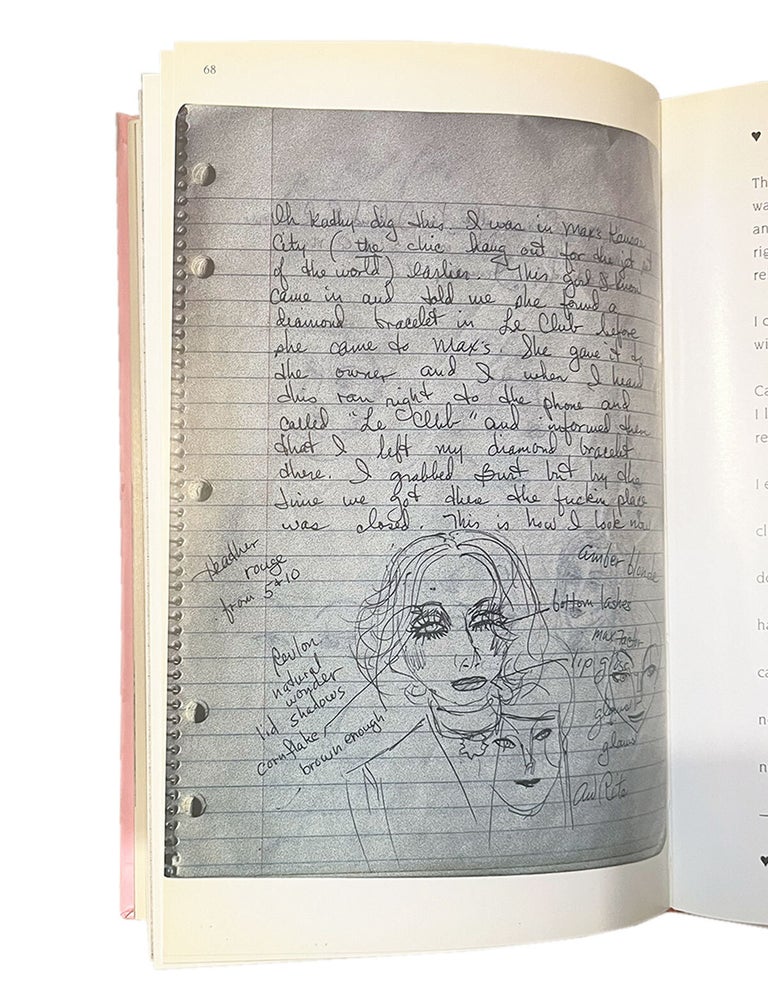 68
Oh Kathy dig this. I was in Max's Kansas
City (the chic hang out for the jet set
of the world) earlier. This girl I know
came in and told me she found a
diamond bracelet in Le Club before
she came to Max's. She gave it to
the owner and I when I heard
this ran right to the phone and
called "Le Club" and informed them
that I left my diamond bracelet
there. I grabbed Burt but by the
time we got there the fuckin place
was closed. This is how I look now
Heather
rouge
from 5 & 10
Revlon
natural
wonder
lid shadows
cornflake,
brown enough
amber blonde
bottom lashes
max factor
lip gloss
♥
Th
wa
an
rig
re
I c
wi
Ca
I l
re
I e
cl
do
ha
ca
n
n
♥